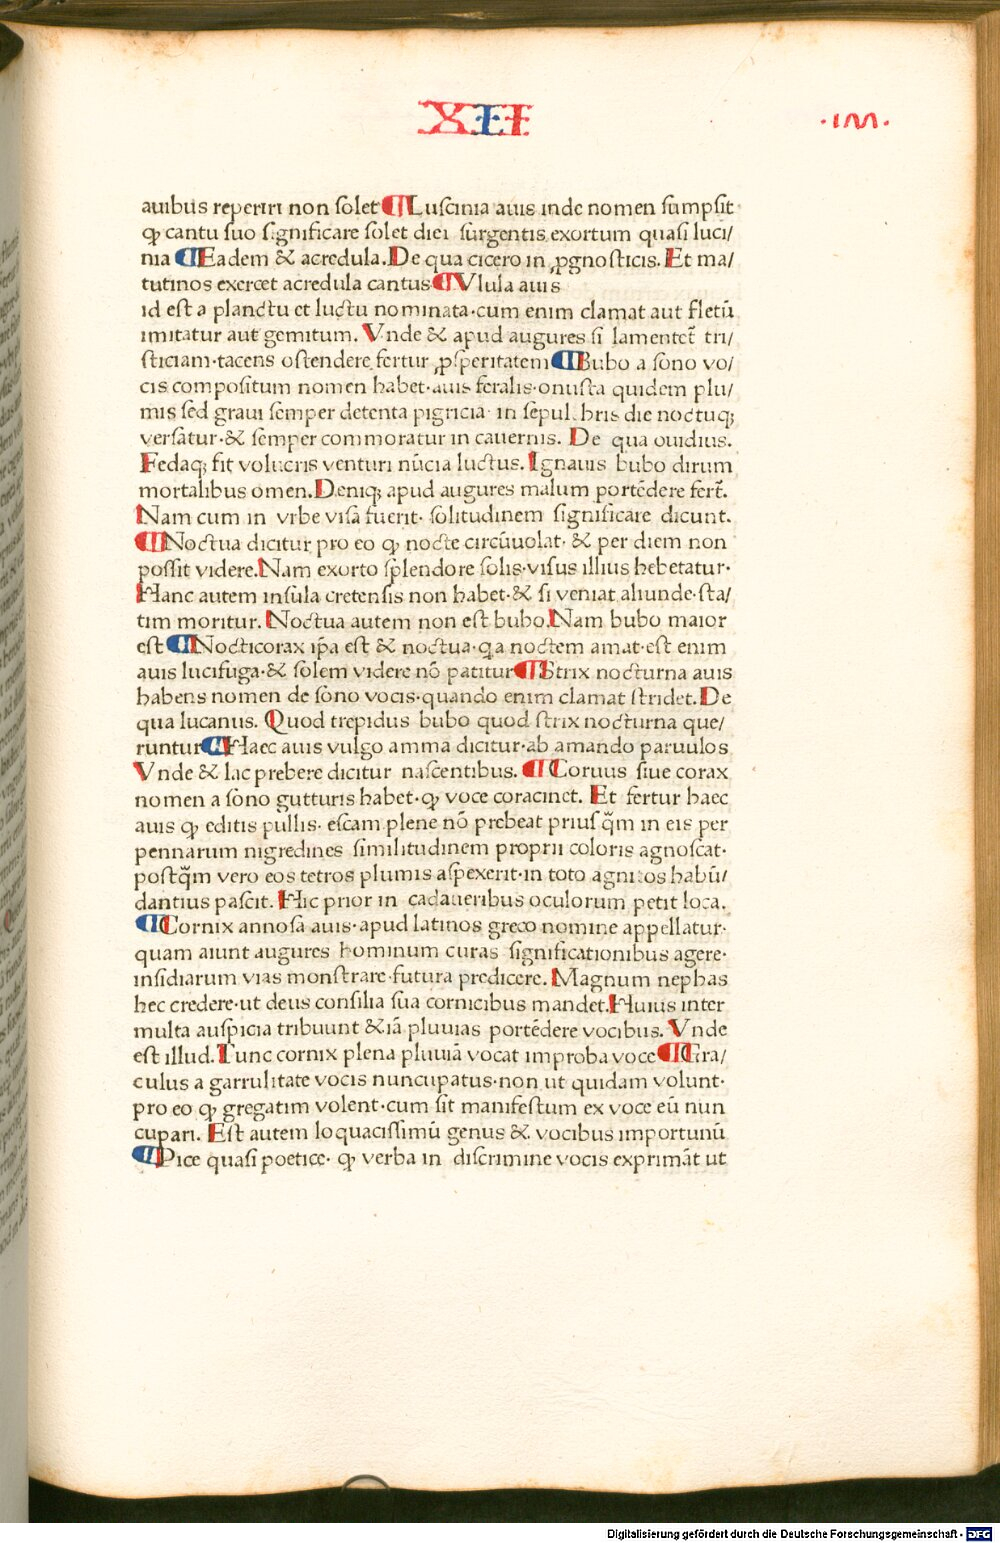 XII
auibus reperiri non solet ¶ Luscinia auis inde nomen sumpsit·
ꝙ cantu suo significare solet diei surgentis exortum quasi luci/
nia ¶ Eadem & acredula. De qua cicero in ꝓgnosticis. Et ma/
tutinos exercet acredula cantus ¶ Vlula auis
id est a planctu et luctu nominata·cum enim clamat aut fletū
imitatur aut gemitum. Vnde & apud augures si lamentet̄ tri/
sticiam·tacens ostendere fertur ꝓsperitatem ¶ Bubo a sono vo/
cis compositum nomen habet·auis feralis·onusta quidem plu/
mis sed graui semper detenta pigricia· in sepulchris die noctuqꝫ
versatur·& semper commoratur in cauernis. De qua ouidius.
Fedaqꝫ fit volucris venturi nūcia luctus. Ignauis bubo dirum
mortalibus omen. Deniqꝫ apud augures malum portēdere fert̄.
Nam cum in vrbe visa fuerit· solitudinem significare dicunt.
¶ Noctua dicitur pro eo ꝙ nocte circūuolat· & per diem non
possit videre. Nam exorto splendore solis·visus illius hebetatur·
Hanc autem insula cretensis non habet·& si veniat aliunde·sta/
tim moritur. Noctua autem non est bubo. Nam bubo maior
est ¶ Nocticorax ip̄a est & noctua·q̣a noctem amat·est enim
auis lucifuga·& solem videre nō patitur ¶ Strix nocturna auis
habens nomen de sono vocis·quando enim clamat stridet. De
qua lucanus. Quod trepidus bubo quod strix nocturna que/
runtur ¶ Haec auis vulgo amma dicitur·ab amando paruulos
Vnde & lac prebere dicitur nascentibus. ¶ Coruus siue corax
nomen a sono gutturis habet·ꝙ voce coracinet. Et fertur haec
auis ꝙ editis pullis· escam plene nō prebeat prius q̄m in eis per
pennarum nigredines similitudinem proprii coloris agnoscat·
postq̄m vero eos tetros plumis aspexerit·in toto agnitos habū/
dantius pascit. Hic prior in cadaueribus oculorum petit loca.
¶ Cornix annosa auis·apud latinos greco nomine appellatur·
quam aiunt augures hominum curas significationibus agere·
insidiarum vias monstrare·futura predicere. Magnum nephas
hec credere·ut deus consilia sua cornicibus mandet. Huius inter
multa auspicia tribuunt &iā pluuias portēdere vocibus. Vnde
est illud. Tunc cornix plena pluuiā vocat improba voce ¶ Gra/
culus a garrulitate vocis nuncupatus·non ut quidam volunt·
pro eo ꝙ gregatim volent·cum sit manifestum ex voce eū nun
cupari. Est autem loquacissimū genus & vocibus importunū
¶ Pice quasi poetice· ꝙ verba in discrimine vocis exprimāt ut
Digitalisierung gefördert durch die Deutsche Forschungsgemeinschaft - DFG